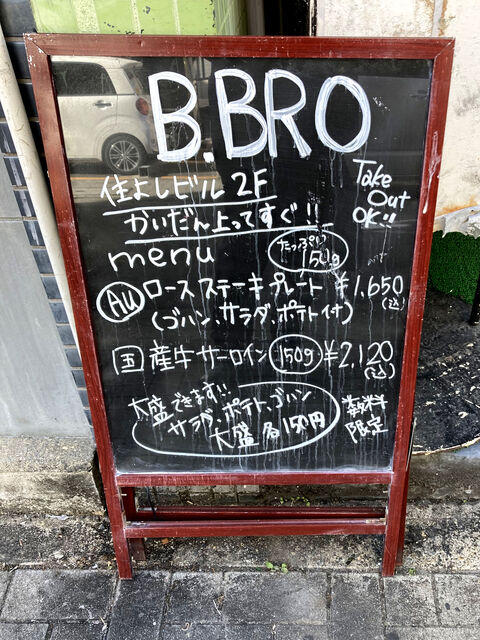 B.BRO
住よしビル 2F
かいだん上ってすぐ!!
Take
Out
OK!!
menu
たっぷり
150g
AU ロースステーキプレート ¥1,650
(込)
(ゴハン、サラダ、ポテト付)
国産牛サーロイン 150g ¥2,120
(込)
大盛できます!!
サラダ、ポテト、ゴハン
大盛 各150円
数料
限定